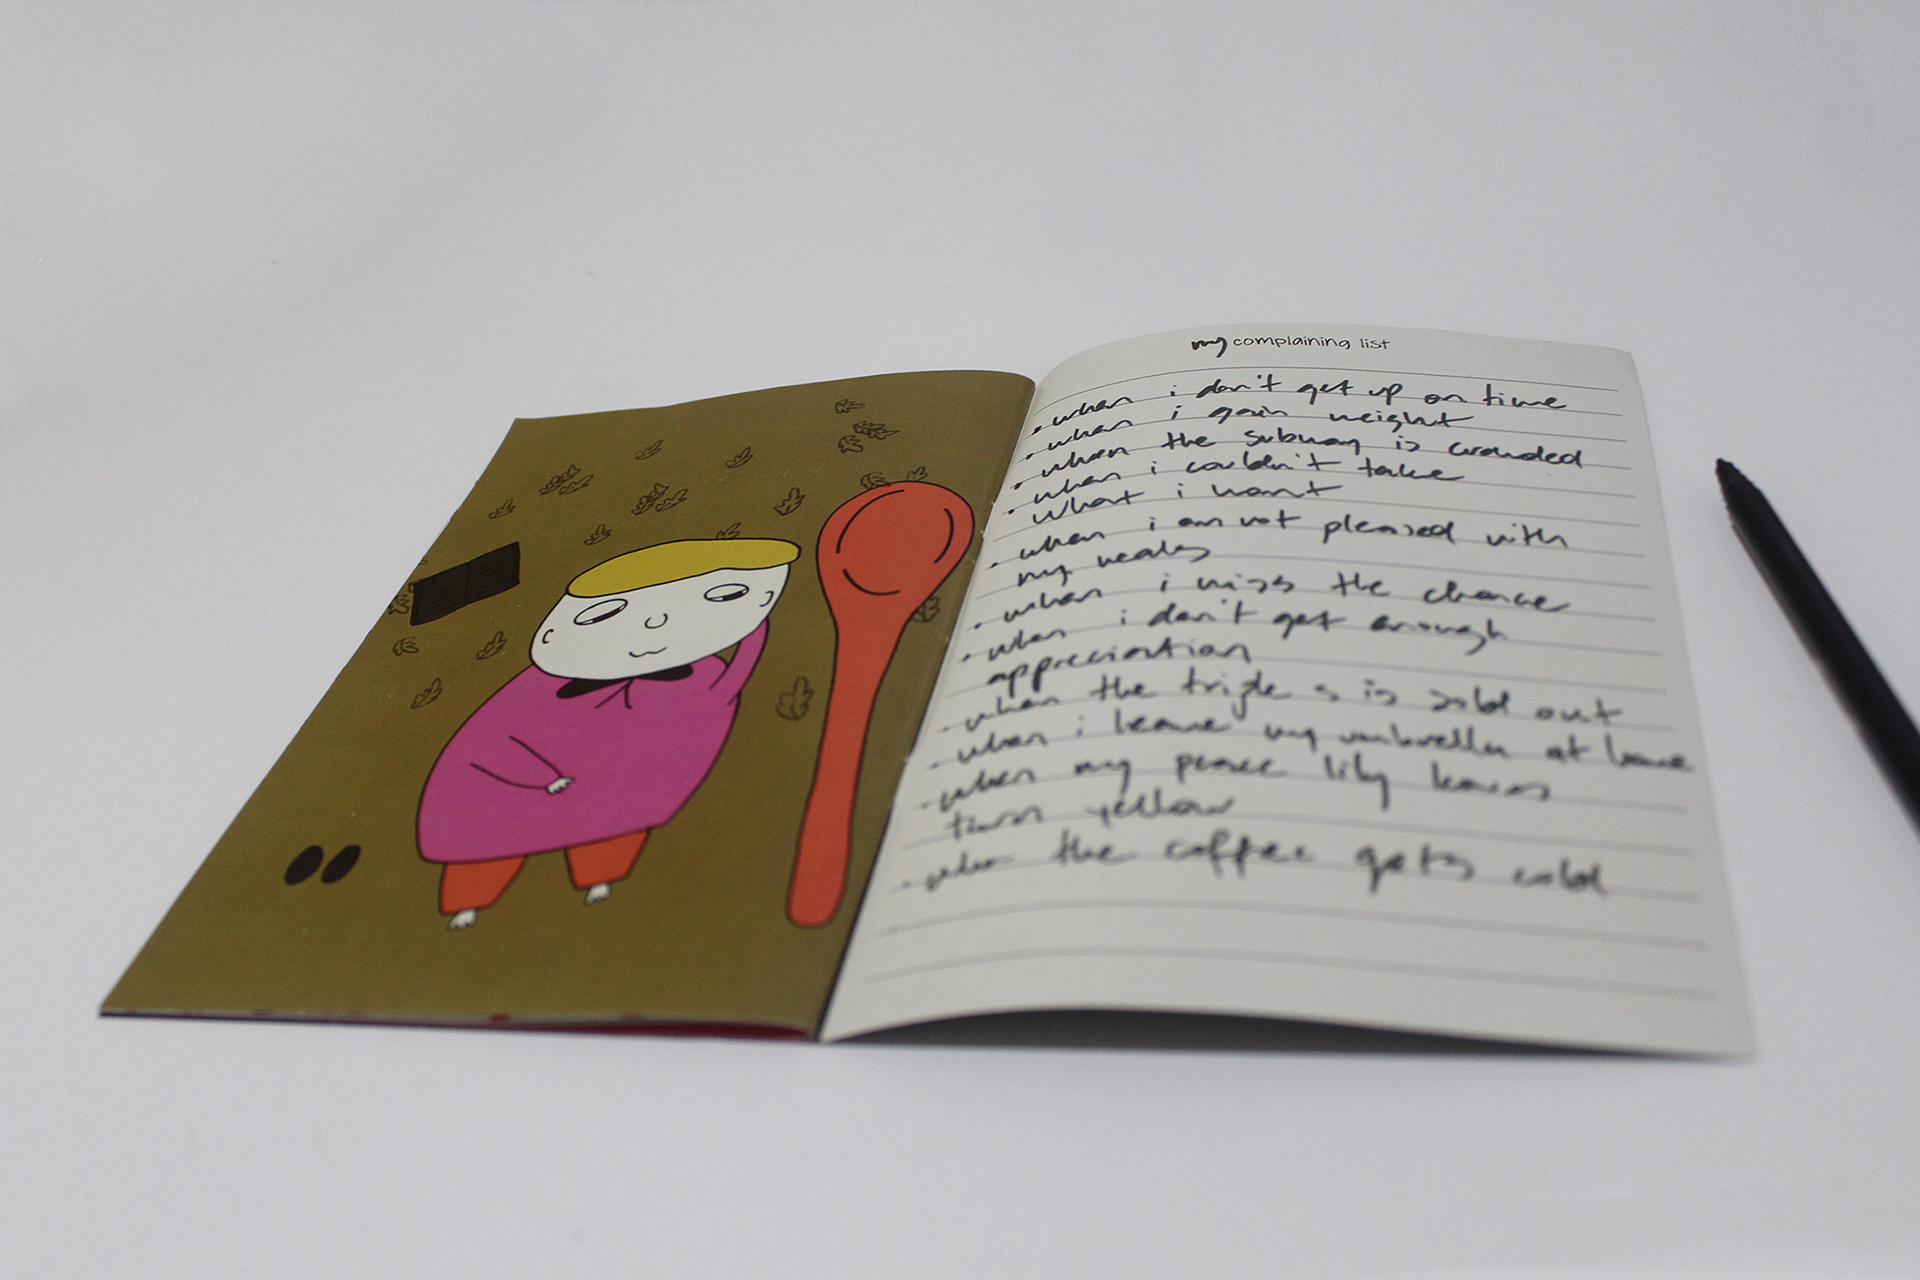 my complaining list
· when i don't get up on time
· when i gain weight
· when the subway is crowded
· when i couldn't take
· what i want
· when i am not pleased with
my meals
· when i miss the chance
· when i don't get enough
appreciation
· when the triple s is sold out
· when i leave my umbrella at home
· when my peace lily leaves
turn yellow
· when the coffee gets cold